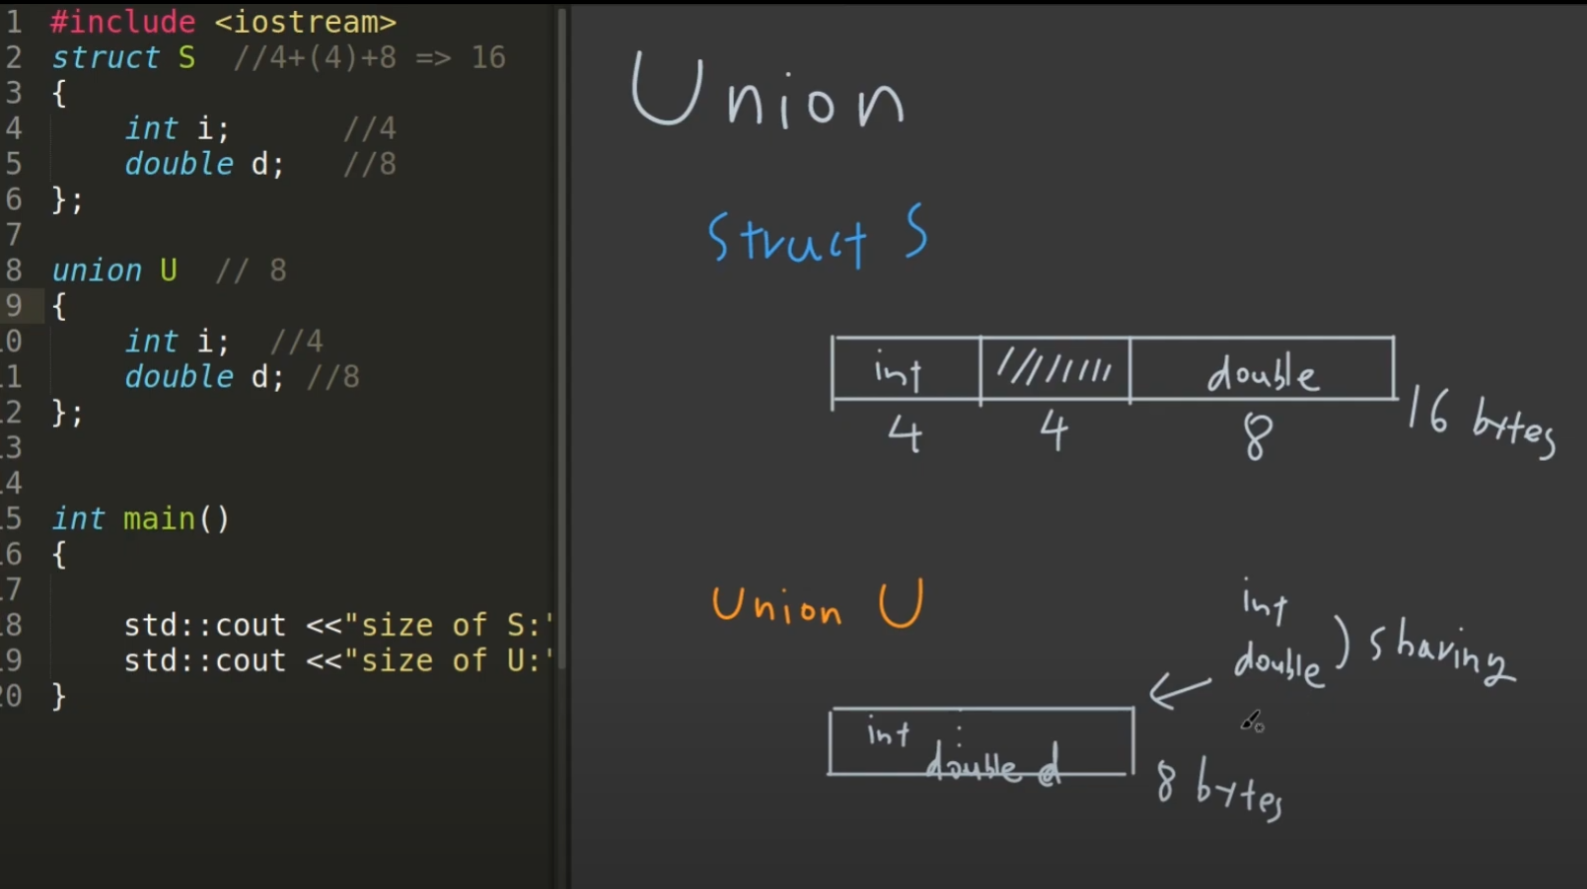 1 #include <iostream>
2 struct S //4+(4)+8 => 16
3 {
4 int i; //4
5 double d; //8
6 };
7
8 union U // 8
9 {
0 int i; //4
1 double d; //8
2 };
3
4
5 int main()
6 {
7
8 std::cout <<"size of S:"
9 std::cout <<"size of U:"
20 }
Union
Struct S
int double
4 4 8 16 bytes
Union U
int
double ) sharing
int i
double d
8 bytes